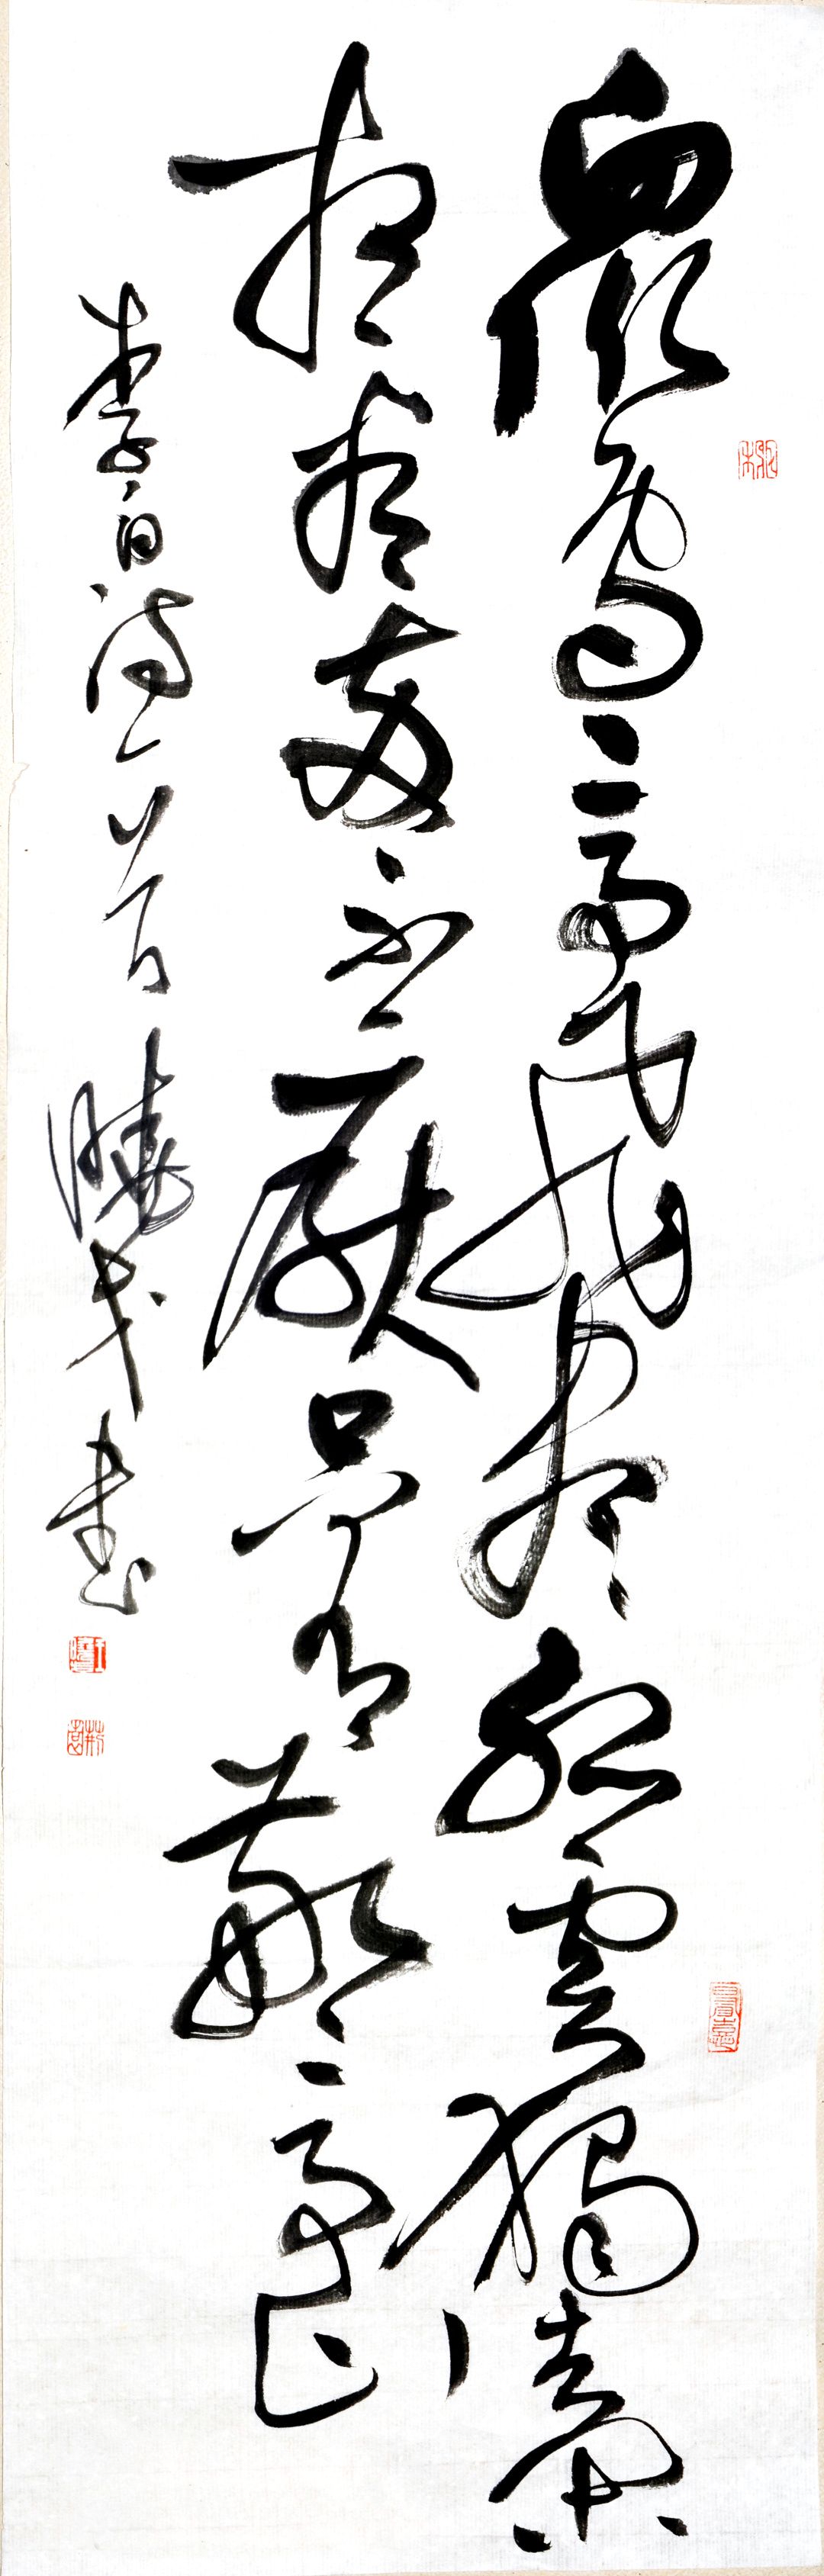 眾鳥高飛盡孤雲獨去閑
相看兩不厭只有敬亭山
李白詩一首 曉戈書